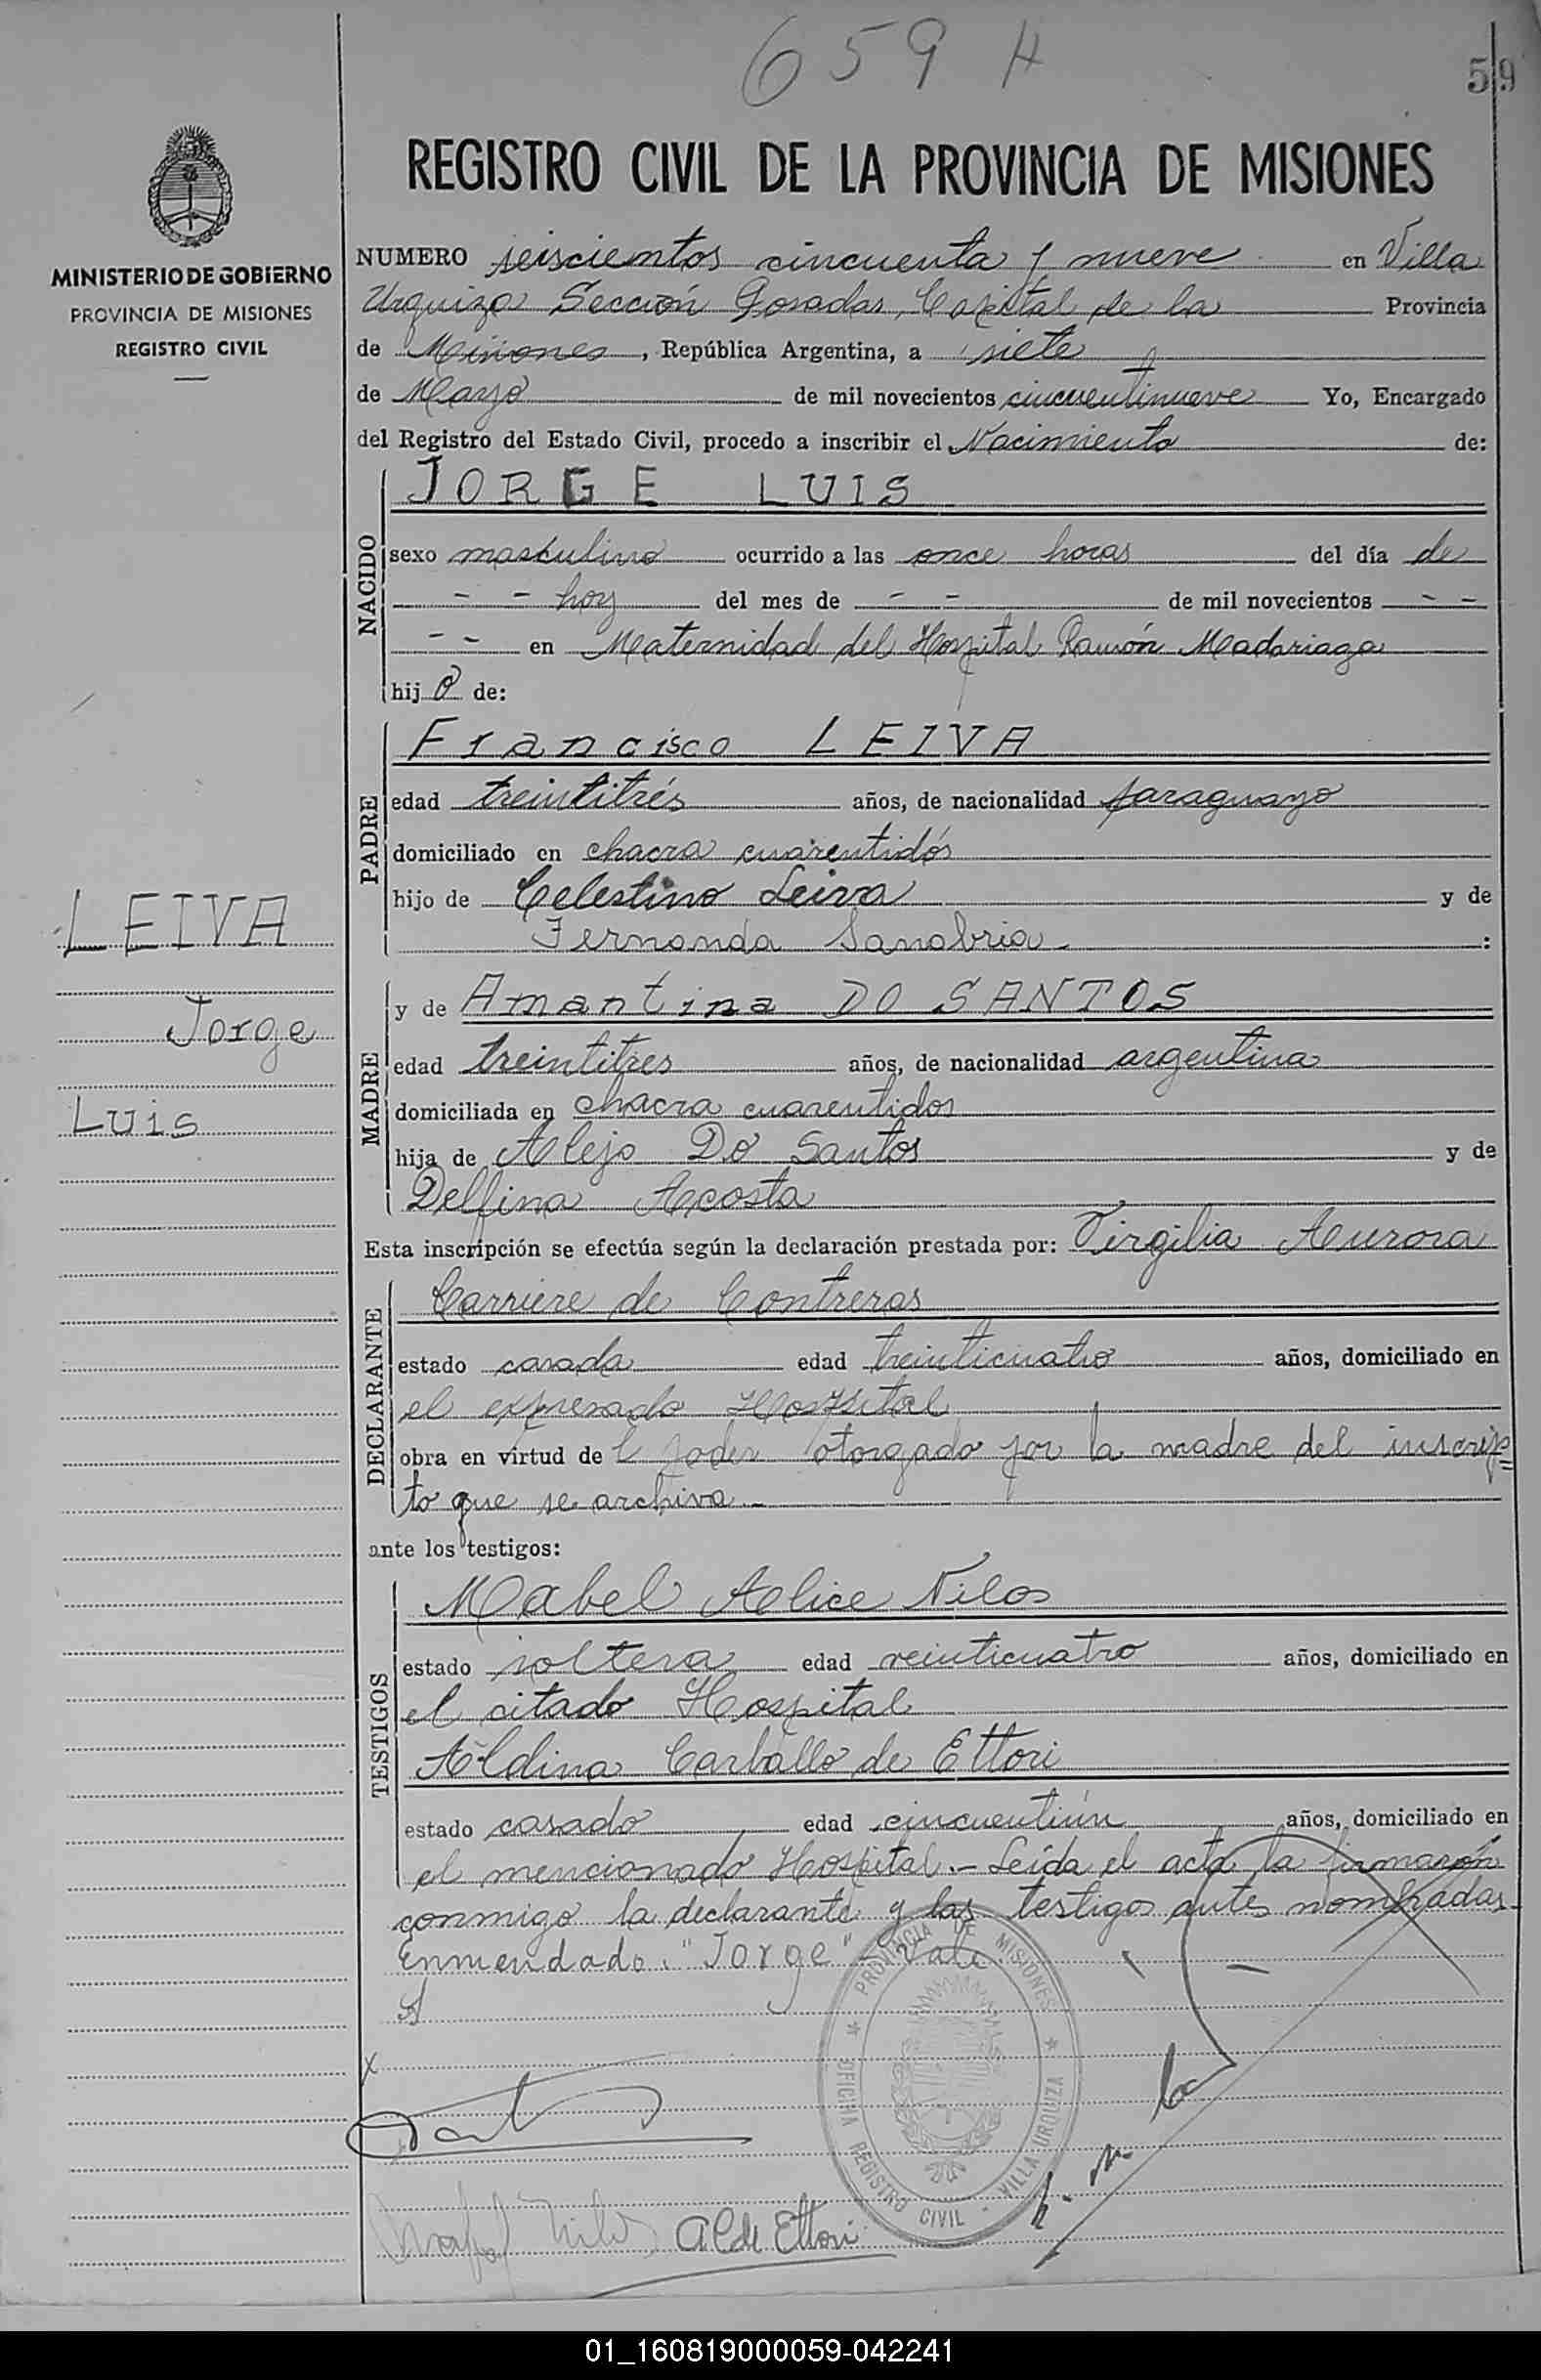 659 A
59
REGISTRO CIVIL DE LA PROVINCIA DE MISIONES
MINISTERIO DE GOBIERNO
PROVINCIA DE MISIONES
REGISTRO CIVIL
NUMERO seiscientos cincuenta y nueve en Villa
Urquiza Sección Posadas, Capital de la Provincia
de Misiones, República Argentina, a siete
de Mayo de mil novecientos cincuentinueve Yo, Encargado
del Registro del Estado Civil, procedo a inscribir el Nacimiento de:
NACIDO
JORGE LUIS
sexo masculino ocurrido a las once horas del día de
- - hoy del mes de - - de mil novecientos - -
- - en Maternidad del Hospital Ramón Madariaga
hijo de:
PADRE
Francisco LEIVA
edad treintitrés años, de nacionalidad paraguayo
domiciliado en chacra cuarentidós
hijo de Celestino Leiva y de
Fernanda Sanabria.- :
LEIVA
Jorge
Luis
MADRE
y de Amantina DO SANTOS
edad treintitres años, de nacionalidad argentina
domiciliada en chacra cuarentidos
hija de Alejo Do Santos y de
Delfina Acosta
Esta inscripción se efectúa según la declaración prestada por: Virgilia Aurora
DECLARANTE
Carriere de Contreras
estado casada edad treinticuatro años, domiciliado en
el expresado Hospital
obra en virtud del poder otorgado por la madre del inscrip=
to que se archiva.-
ante los testigos:
TESTIGOS
Mabel Alice Nilos
estado soltera edad veinticuatro años, domiciliado en
el citado Hospital
Aldina Carballo de Ettori
estado casado edad cincuentiún años, domiciliado en
el mencionado Hospital.- Leída el acta la firmarón
conmigo la declarante y las testigos antes nombradas.-
Enmendado: "Jorge" - Vale.
PROVINCIA DE MISIONES
OFICINA REGISTRO CIVIL - VILLA URQUIZA
A C de Ettori
01_160819000059-042241